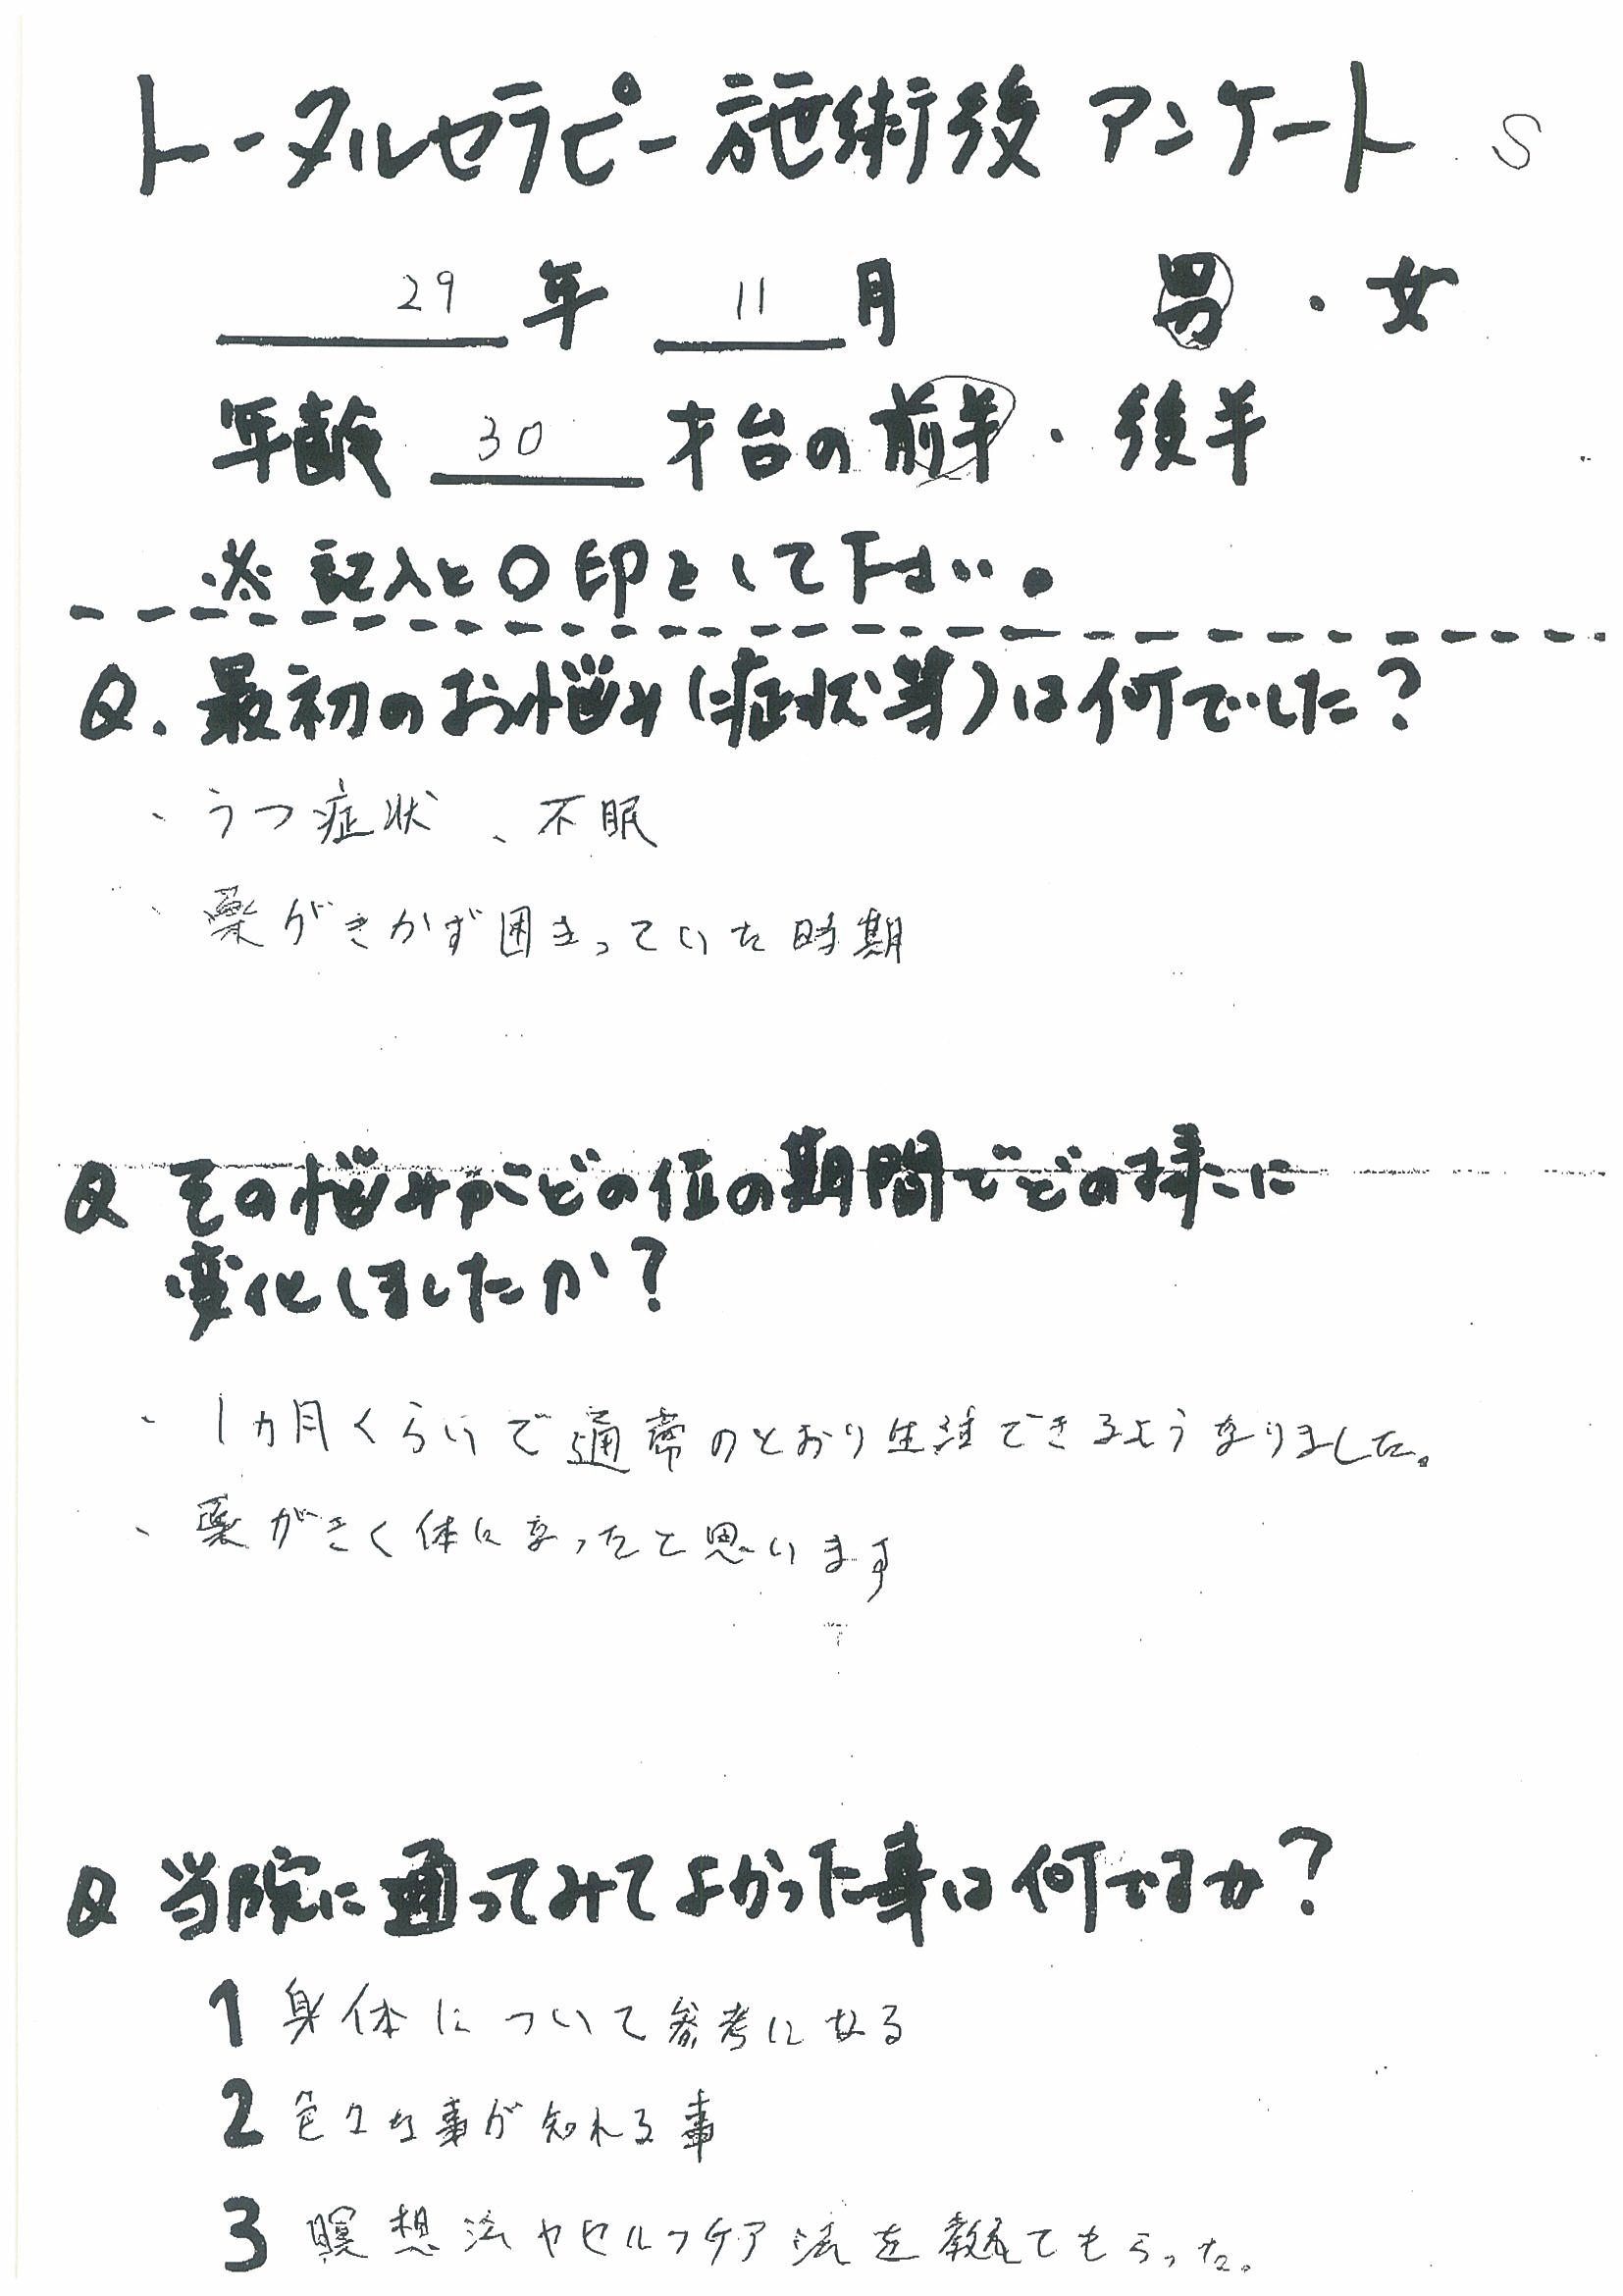 トータルセラピー施術後 アンケート S
29 年 11 月 男・女
年齢 30 才台の前半・後半
※ 記入と〇印をして下さい。
Q. 最初のお悩み(症状等)は何でした?
・うつ症状、不眠
・薬がきかず困まっていた時期
Q その悩みがどの位の期間でどの様に
変化しましたか?
・1カ月くらいで通常のとおり生活できるようなりました。
・薬がきく体になったと思います
Q 当院に通ってみてよかった事は何ですか?
1 身体について参考になる
2 色々な事が知れる事
3 瞑想法やセルフケア法を教えてもらった。